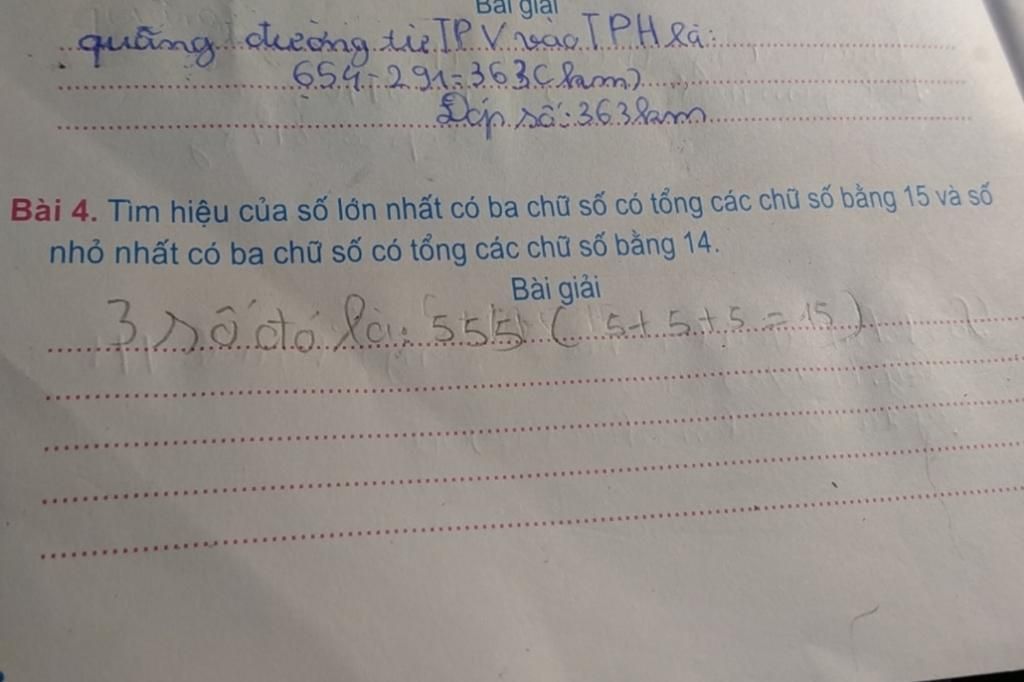 Bài giải
quãng đường từ TP V vào TP H là:
654 - 291 = 363 (km)
Đáp số: 363 km
Bài 4. Tìm hiệu của số lớn nhất có ba chữ số có tổng các chữ số bằng 15 và số
nhỏ nhất có ba chữ số có tổng các chữ số bằng 14.
Bài giải
3 số đó là: 555 ( 5 + 5 + 5 = 15 )